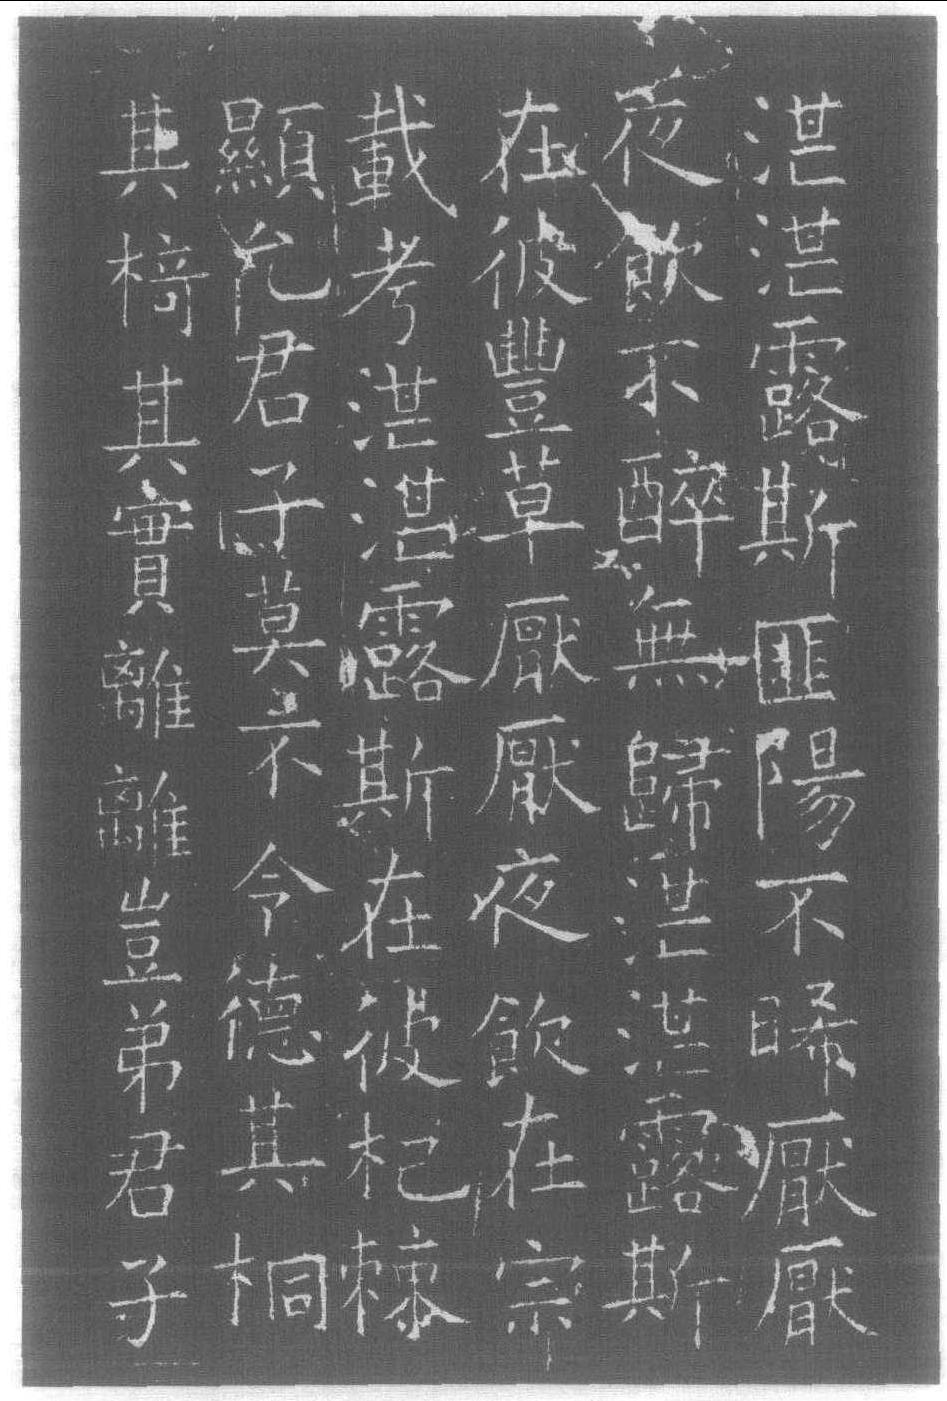 湛湛露斯匪陽不晞厭厭
夜飲不醉無歸湛湛露斯
在彼豐草厭厭夜飲在宗
載考湛湛露斯在彼杞棘
顯允君子莫不令德其桐
其椅其實離離豈弟君子